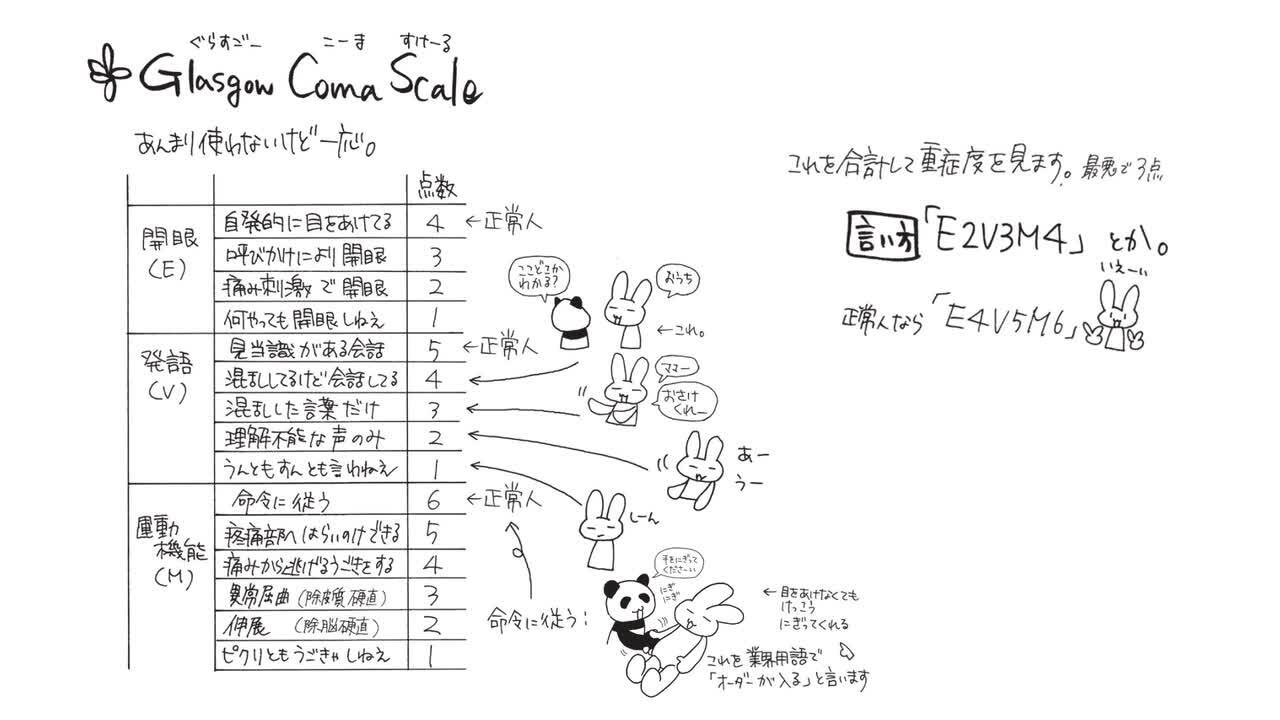 ぐらすごー こーま すけーる
Glasgow Coma Scale
あんまり使わないけど一応。
点数
開眼
(E)
自発的に目をあけてる 4 ←正常人
呼びかけにより開眼 3
痛み刺激で開眼 2
何やっても開眼しねえ 1
発語
(V)
見当識がある会話 5 ←正常人
混乱してるけど会話してる 4
混乱した言葉だけ 3
理解不能な声のみ 2
うんともすんとも言わねえ 1
運動
機能
(M)
命令に従う 6 ←正常人
疼痛部へはらいのけできる 5
痛みから逃げるうごきをする 4
異常屈曲(除皮質硬直) 3
伸展 (除脳硬直) 2
ピクリともうごきゃしねえ 1
ここどこか
わかる?
おうち
←これ。
ママー
おさけ
くれー
あー
うー
しーん
命令に従う:
手をにぎって
くださーい
にぎ
にぎ
←目をあけなくても
けっこう
にぎってくれる
これを業界用語で
「オーダーが入る」と言います
これを合計して重症度を見ます。最悪で3点
言い方「E2V3M4」とか。
いえーい
正常人なら「E4V5M6」